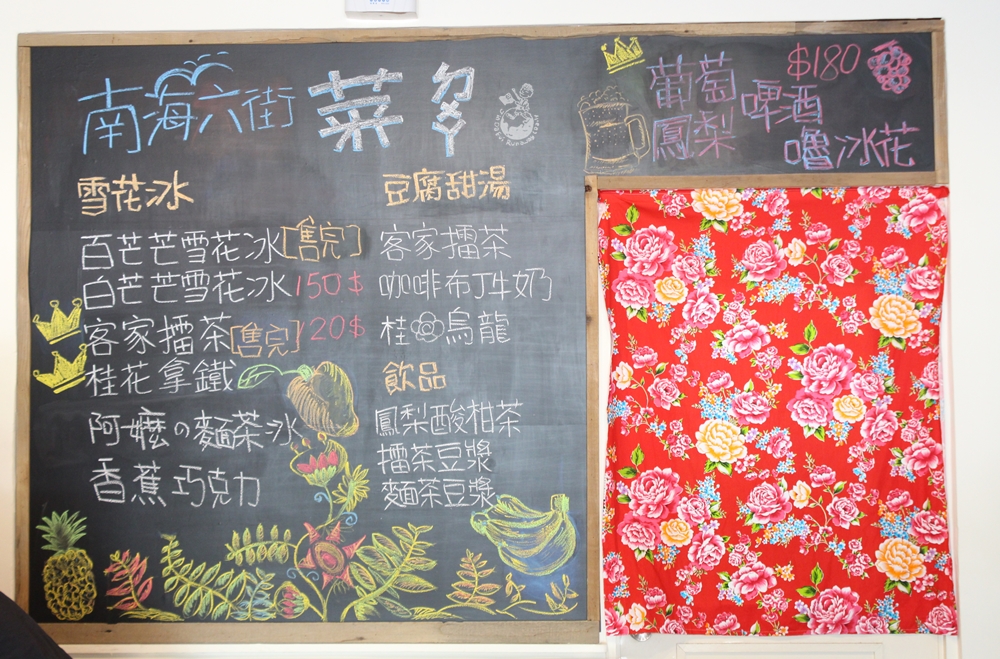 南海六街 菜ㄅㄨㄚˇ
雪花冰
百芒芒雪花冰[售完]
白芒芒雪花冰 150$
客家擂茶[售完] 120$
桂花拿鐵
阿嬤の麵茶冰
香蕉巧克力
豆腐甜湯
客家擂茶
咖啡布丁牛奶
桂 烏龍
飲品
鳳梨酸柑茶
擂茶豆漿
麵茶豆漿
$180
葡萄
鳳梨
啤酒
嚕冰花